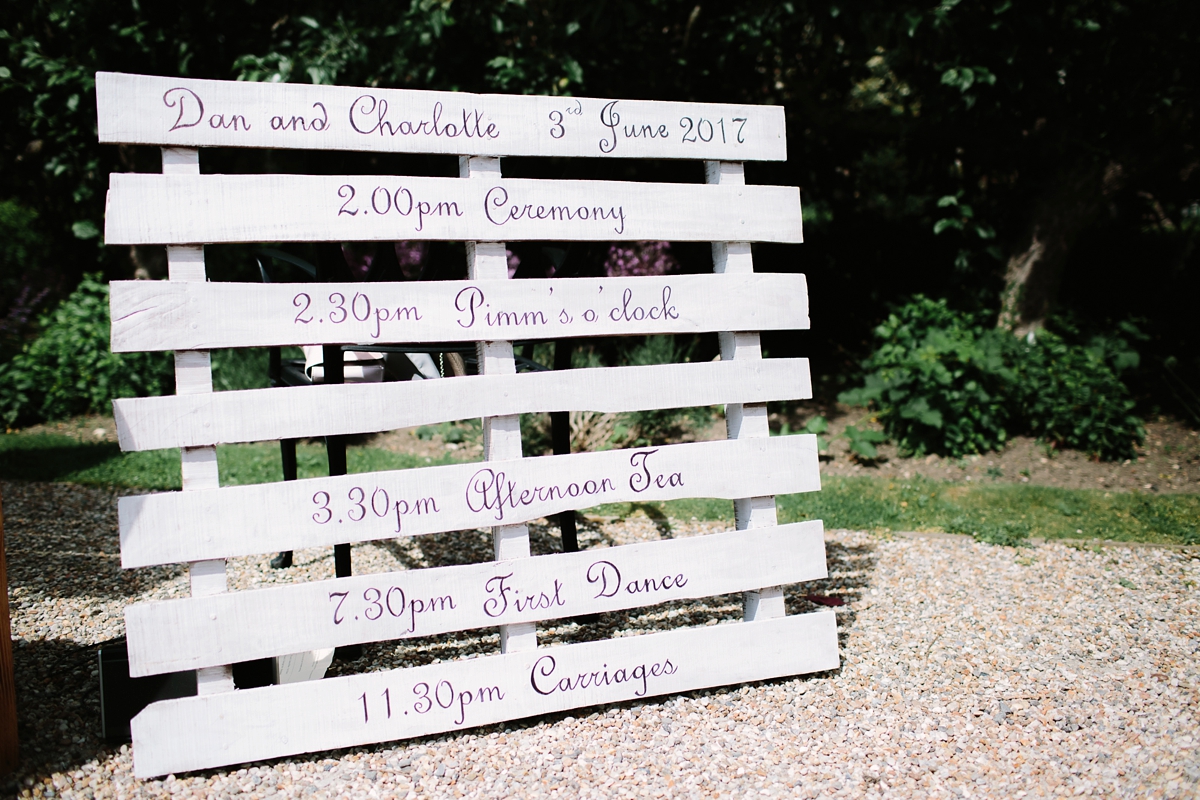 Dan and Charlotte 3rd June 2017
2.00pm Ceremony
2.30pm Pimm's o'clock
3.30pm Afternoon Tea
7.30pm First Dance
11.30pm Carriages